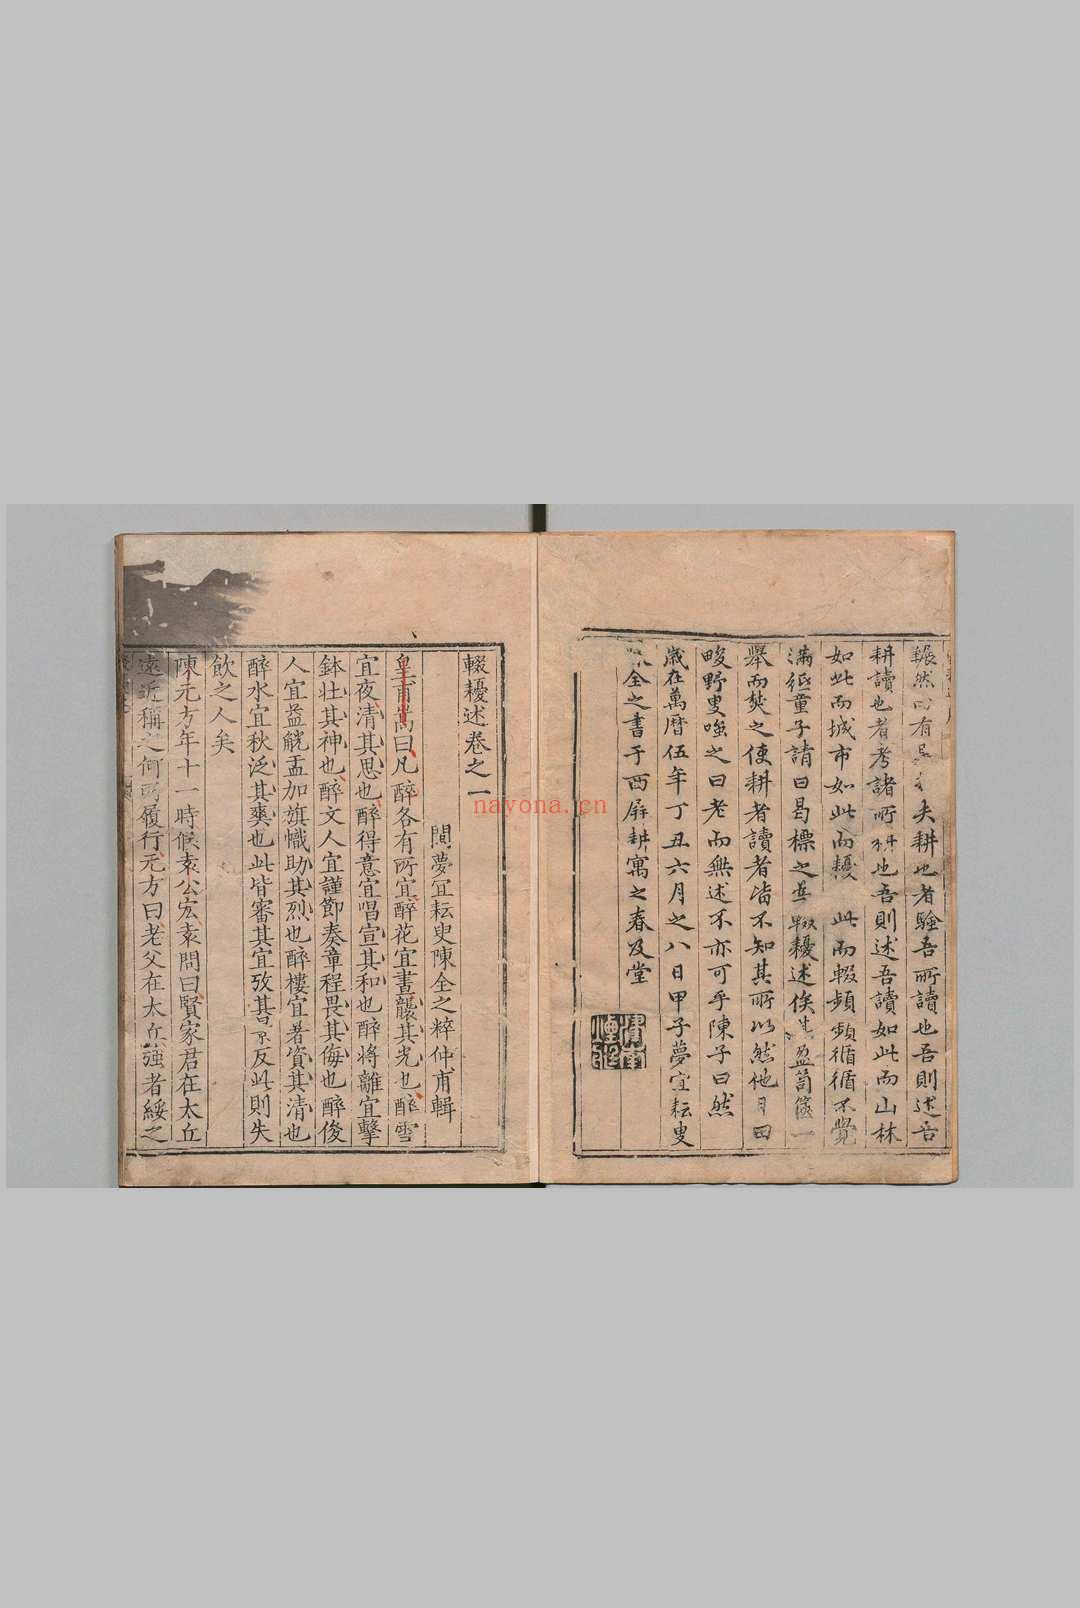 輾然曰有
夫耕也者驗吾所讀也吾則述吾
耕讀也者考諸所耕也吾則述吾讀如此而山林
如此而城市如此而耰
此而輟頻頻循循不覺
滿紙童子請曰曷標之
輟耰述俟
盈笥篋一
舉而焚之使耕者讀者皆不知其所以然他日田
畯野叟嗤之曰老而無述不亦可乎陳子曰然
歲在萬曆伍年丁丑六月之八日甲子夢宜耘叟
全之書于西屏耕寓之春及堂
輟耰述卷之一
閩夢宜耘叟陳全之粹仲甫輯
皇甫嵩曰凡醉各有所宜醉花宜晝襲其光也醉雪
宜夜清其思也醉得意宜唱宣其和也醉將離宜擊
鉢壯其神也醉文人宜謹節奏章程畏其侮也醉俊
人宜益觥盂加旗幟助其烈也醉樓宜暑資其清也
醉水宜秋泛其爽也此皆審其宜攷其景反此則失
飲之人矣
陳元方年十一時候袁公袁公問曰賢家君在太丘
遠近稱之何所履行元方曰老父在太丘強者綏之
nayona.cn